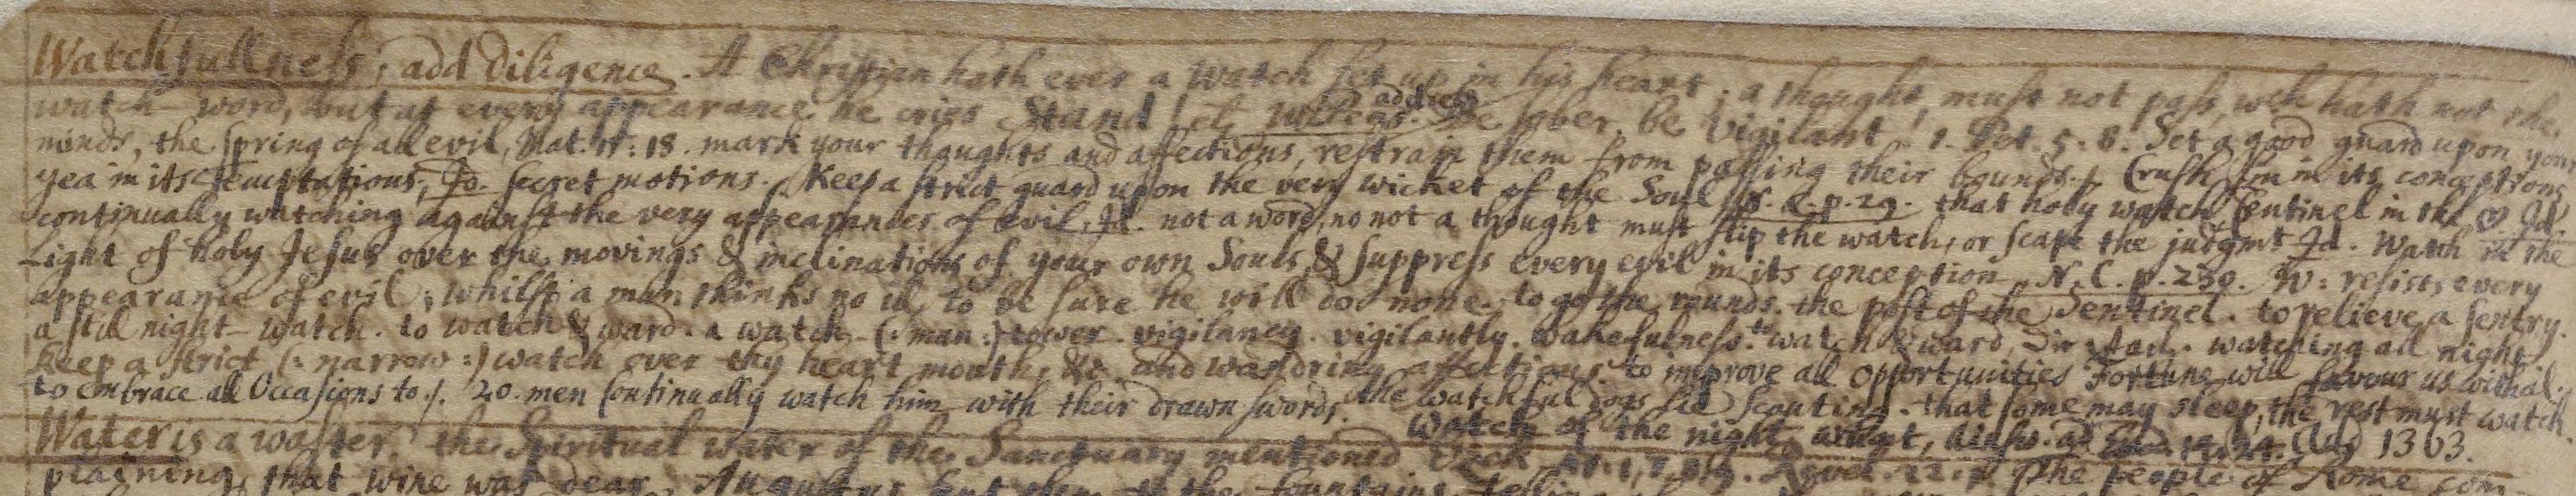 Watchfullness, add diligence. A Christian hath ever a watch set up in his heart, a thought must not pass, wch hath not the
watch-word, but at every appearance he cries Stand be sober, be vigilant. 1. Pet. 5. 8. Set a good guard upon your
minds, the spring of all evil, Mat. 18. mark your thoughts and affections, restrain them from passing their bounds. Crush sin in its conceptions
yea in its temptations, Id. secret motions. Keep a strict guard upon the very wicket of the Soul p. 29. that holy watch Sentinel in the ♡ Id.
continually watching against the very appearances of evil, Id. not a word, no not a thought must slip the watch, or scape the judgmt Id. Watch in the
Light of holy Jesus over the movings & inclinations of your own Souls, & suppress every evil in its conception N. C. p. 239. W: resists every
appearance of evil; whilst a man thinks no ill, to be sure he will do none. to go the rounds. the post of the Sentinel. to relieve a sentry.
a still night-watch. to watch & ward. a watch-(:man:) tower. vigilancy. vigilantly. wakefulness. to watch & ward, watching all night
Keep a strict (: narrow :) watch over thy heart mouth, &c. and wandring affections. to improve all opportunities Fortune will favour us withal.
to embrace all Occasions to 20. men continually watch him with their drawn swords. the watchful Dogs lie scouting. that some may sleep, the rest must watch.
Watch of the night, 14. 24. 1363.
Water is a waster. the Spiritual water of the Sanctuary mentioned Revel. 22. The people of Rome com
plaining, that wine was dear, Augustus the fountains, telling